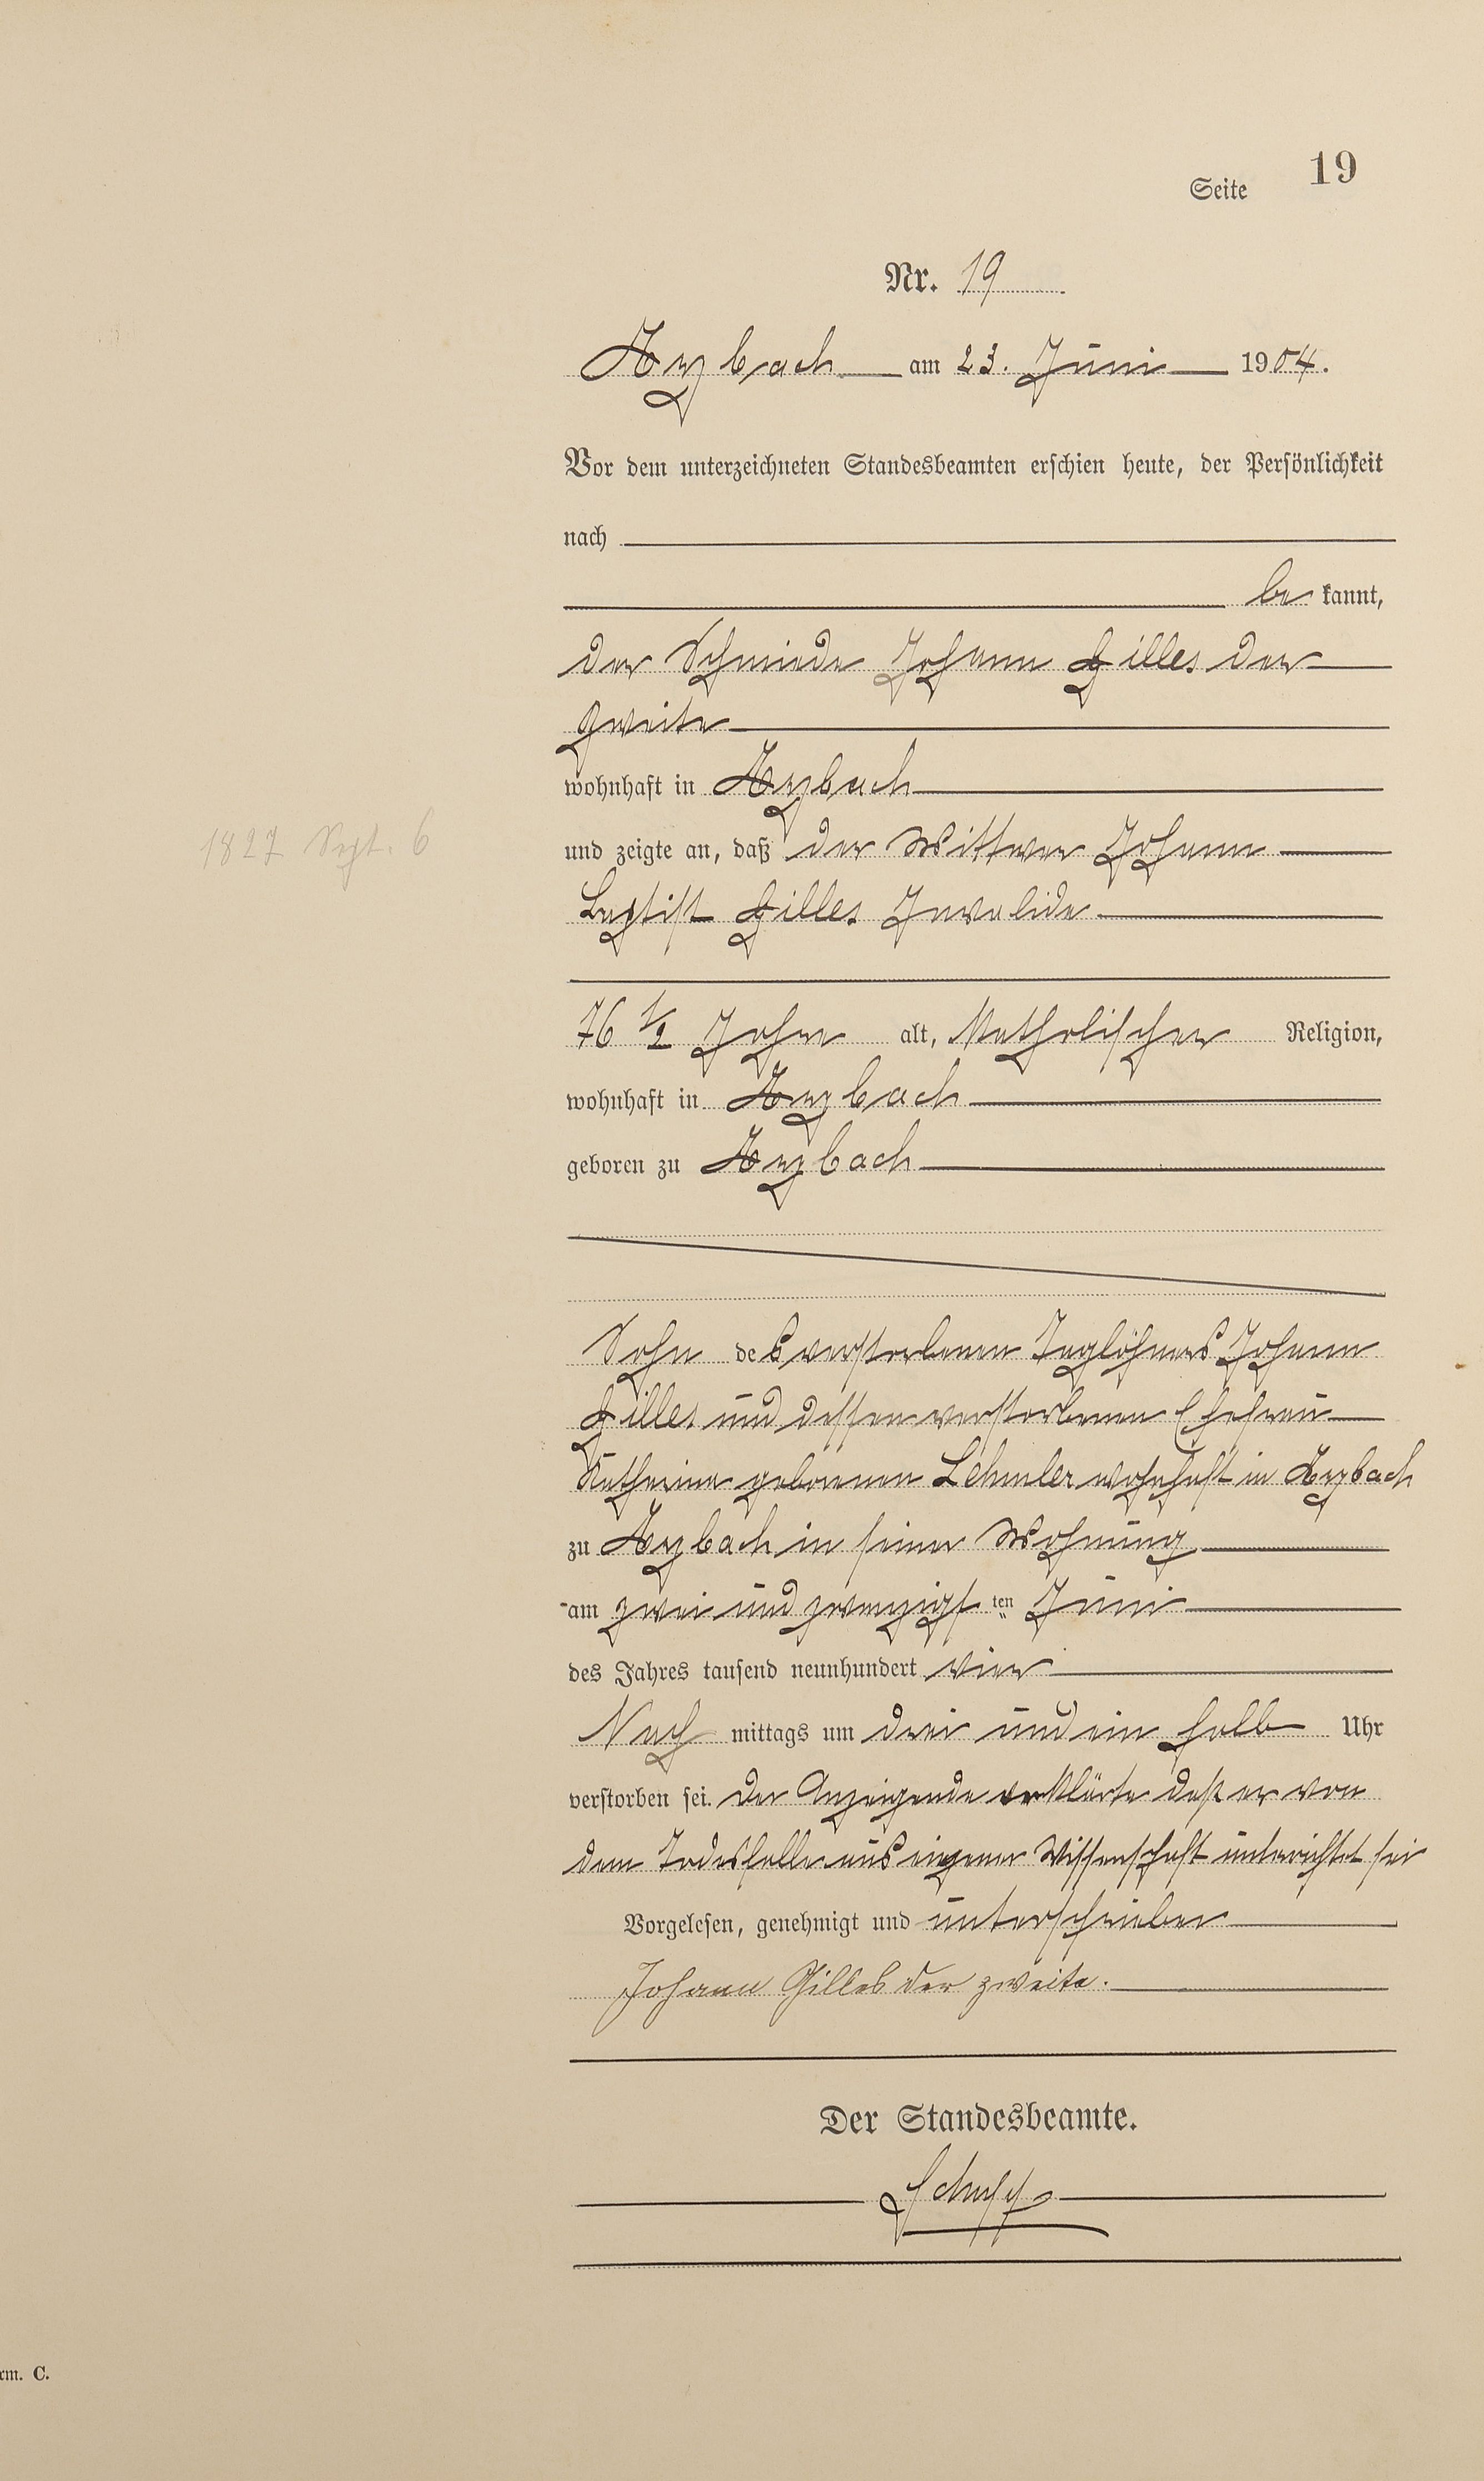 Seite 19
Nr. 19
Arzbach am 23. Juni 1904.
Vor dem unterzeichneten Standesbeamten erschien heute, der Persönlichkeit
nach
be kannt,
der Schmiede Johann Gilles der
zweite
wohnhaft in Arzbach
1827 Sept. 6
und zeigte an, daß der Wittwer Johann
Baptist Gilles Invalide
76 1/2 Jahre alt, Katholischer Religion,
wohnhaft in Arzbach
geboren zu Arzbach
Sohn des verstorbenen Taglöhners Johann
Gilles und dessen verstorbenen Ehefrau
Katharina geborenen Lehmler wohnhaft in Arzbach
zu Arzbach in seiner Wohnung
am zwei und zwanzigsten Juni
des Jahres tausend neunhundert vier
Nach mittags um drei und ein halb Uhr
verstorben sei. Der Anzeigende erklärte daß er von
dem Todesfalle aus eigener Wissenschaft unterrichtet sei
Vorgelesen, genehmigt und unterschrieben
Johann Gilles der zweite.
Der Standesbeamte.
Schupp
rm. C.